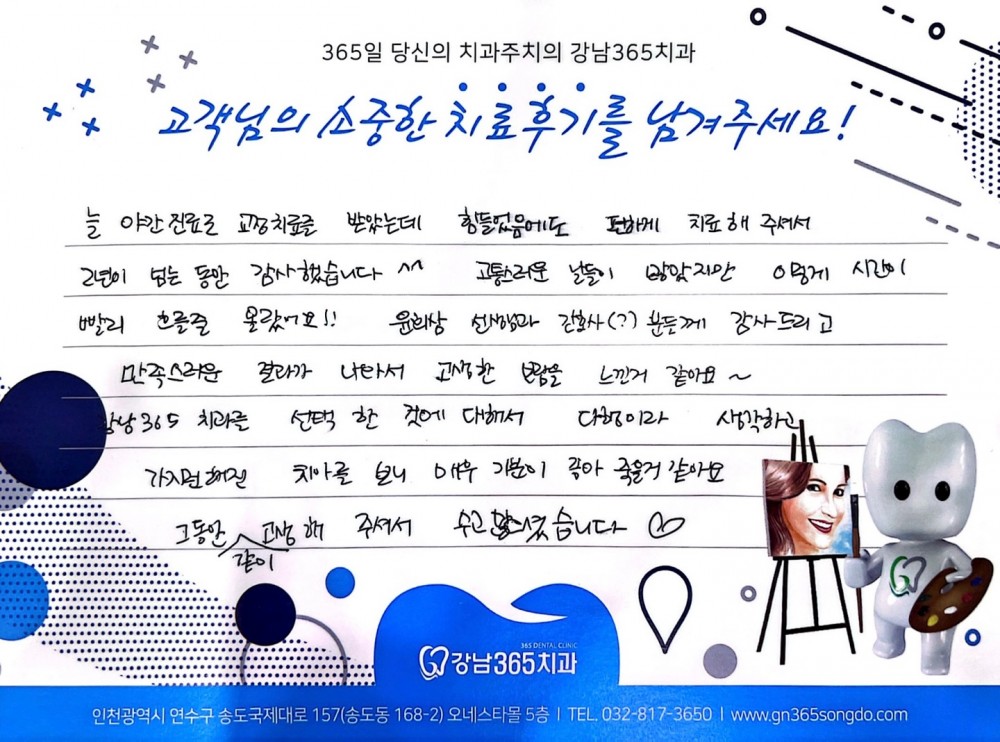 365일 당신의 치과주치의 강남365치과
고객님의 소중한 치료후기를 남겨주세요!
늘 야간진료로 교정치료를 받았는데 힘들었음에도 편하게 치료해 주셔서
2년이 넘는 동안 감사했습니다 ^^ 고통스러운 날들이 많았지만 이렇게 시간이
빨리 흐를줄 몰랐어요!! 윤희상 선생님과 간호사(?) 분들께 감사드리고
만족스러운 결과가 나타서 고생한 보람을 느낀거 같아요~
강남365 치과를 선택 한 것에 대해서 다행이라 생각하고
가지런해진 치아를 보니 매우 기분이 좋아 죽을거 같아요
그동안 같이 고생해 주셔서 수고 많으셨습니다 ♡
365 DENTAL CLINIC
강남365치과
인천광역시 연수구 송도국제대로 157(송도동 168-2) 오네스타몰 5층 | TEL. 032-817-3650 | www.gn365songdo.com